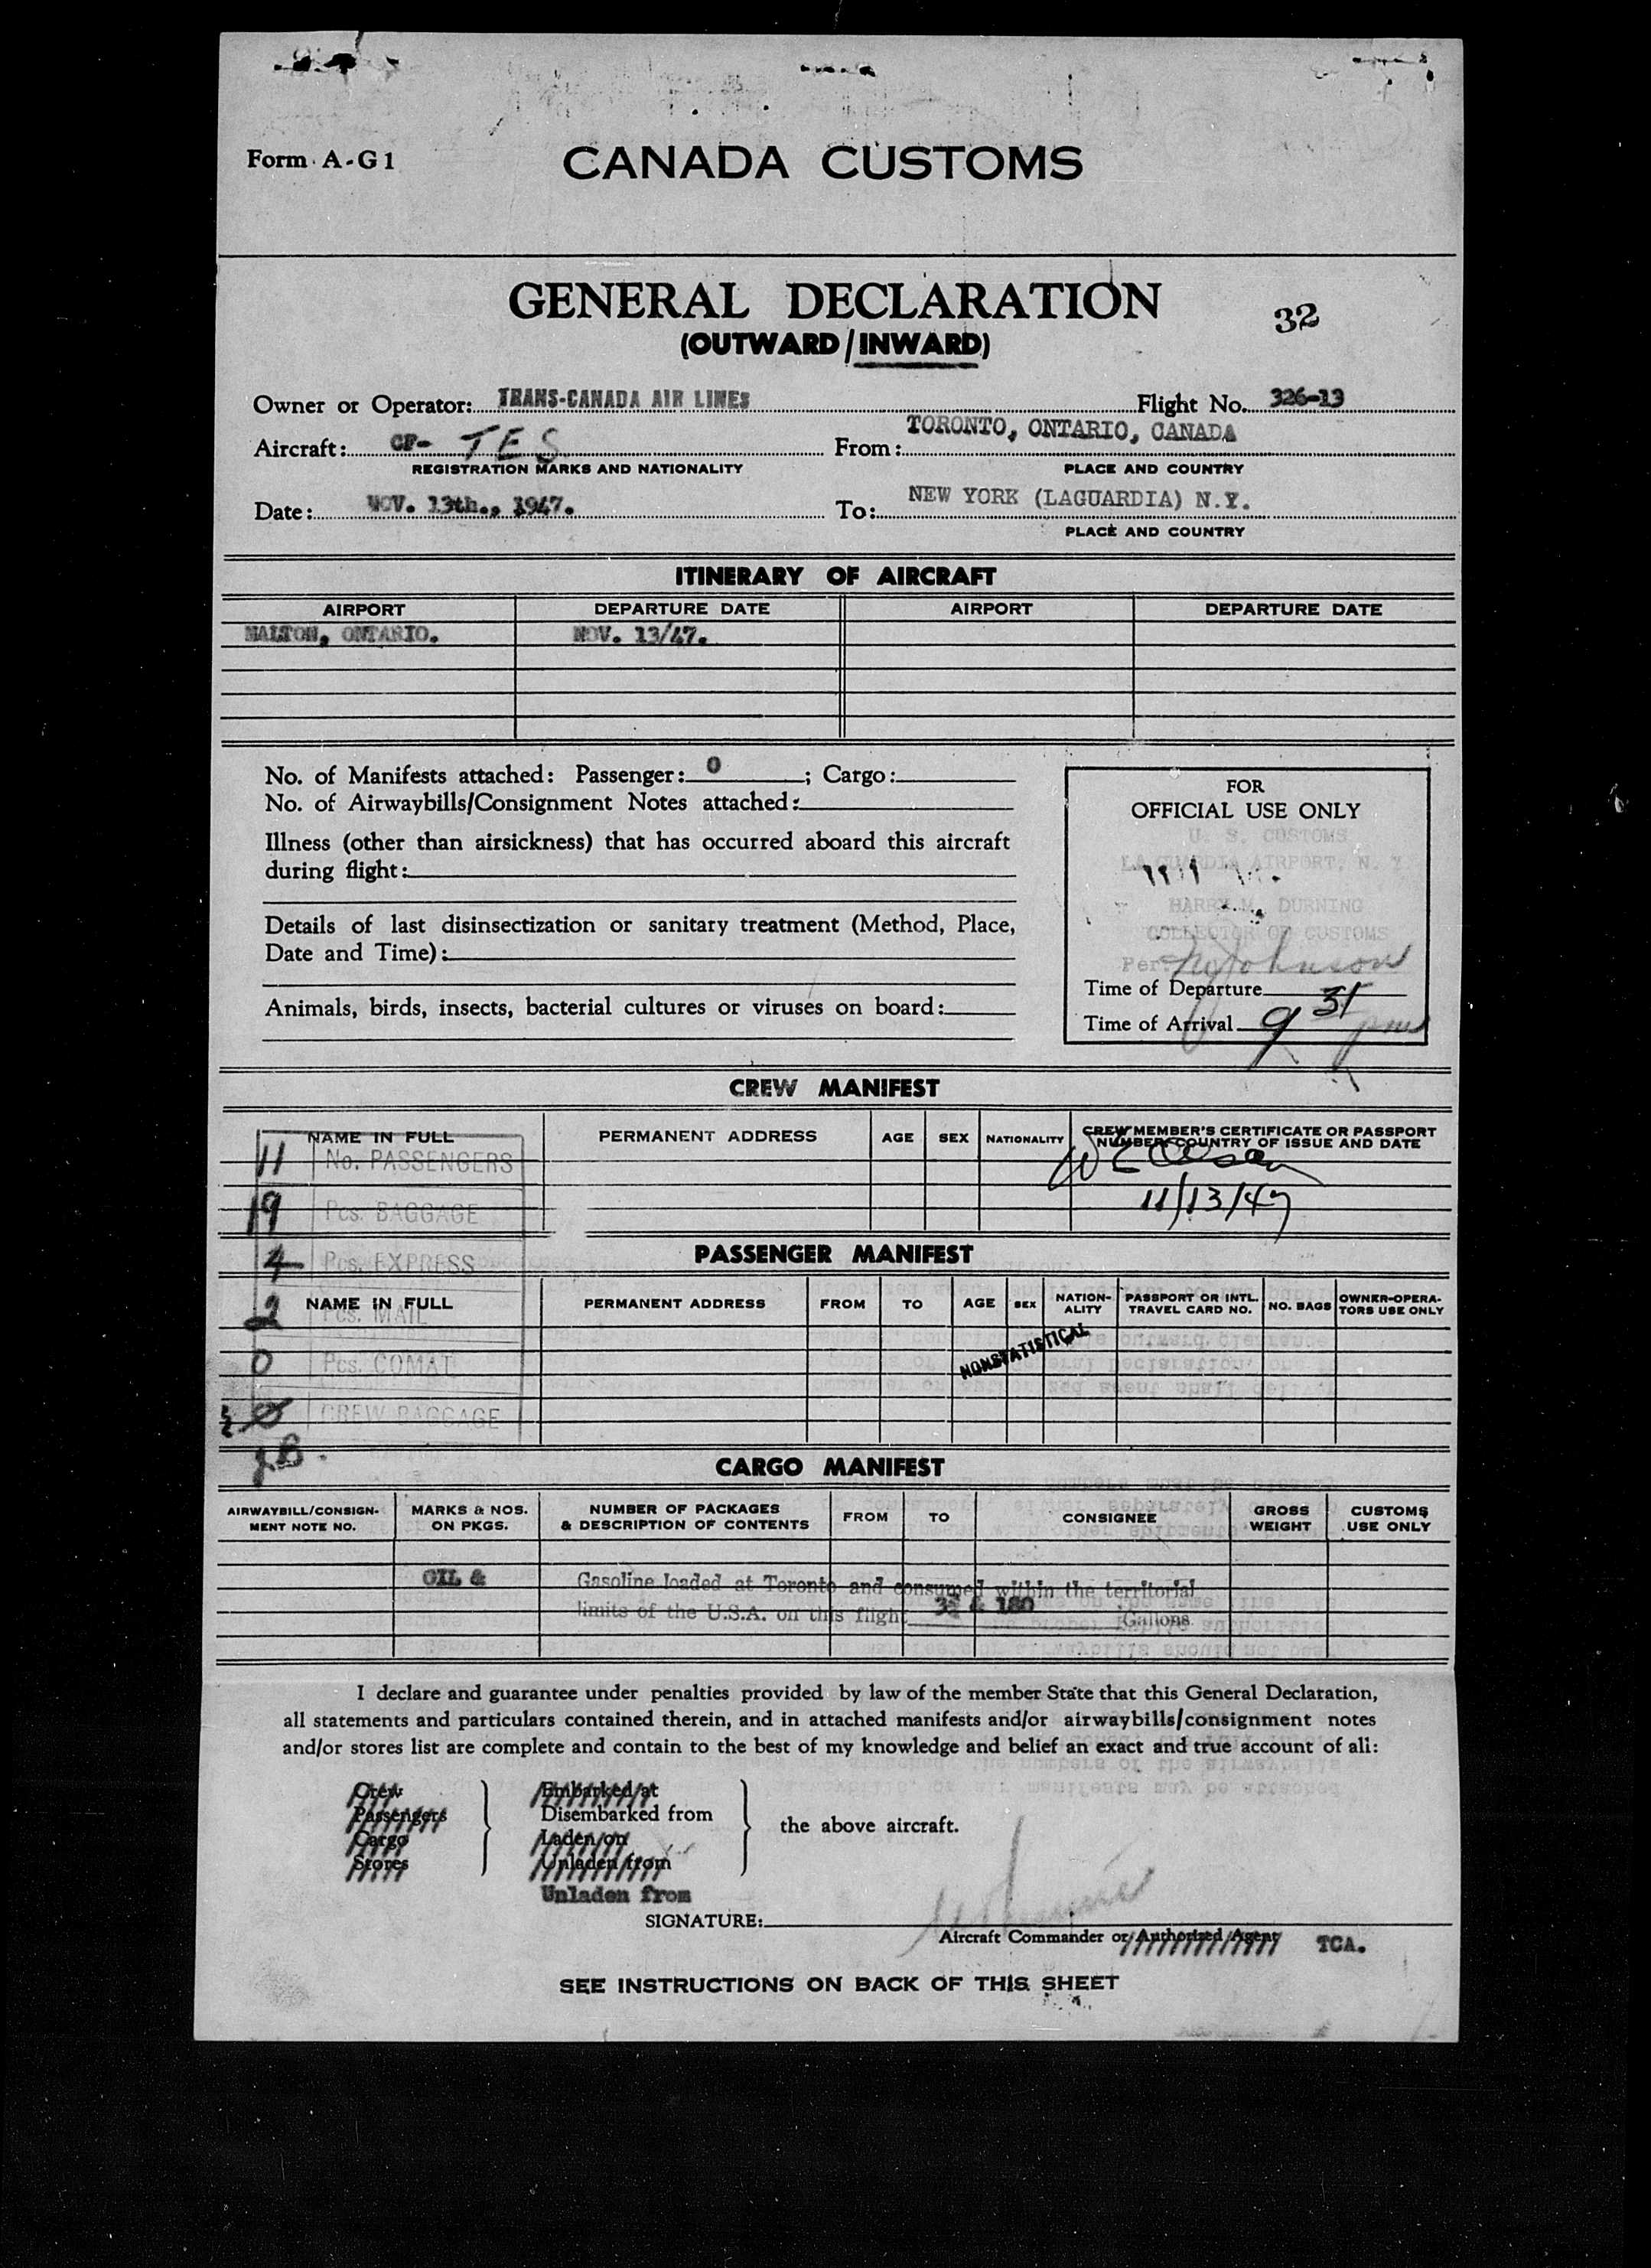 Form A-G1
CANADA CUSTOMS
GENERAL DECLARATION
32
(OUTWARD/INWARD)
Owner or Operator: TRANS-CANADA AIR LINES Flight No. 326-13
Aircraft: CF- TES From: TORONTO, ONTARIO, CANADA
REGISTRATION MARKS AND NATIONALITY PLACE AND COUNTRY
Date: NOV. 13th., 1947. To: NEW YORK (LAGUARDIA) N.Y.
PLACE AND COUNTRY
ITINERARY OF AIRCRAFT
AIRPORT DEPARTURE DATE AIRPORT DEPARTURE DATE
MALTON, ONTARIO. NOV. 13/47.
No. of Manifests attached: Passenger: 0 ; Cargo:
No. of Airwaybills/Consignment Notes attached:
Illness (other than airsickness) that has occurred aboard this aircraft
during flight:
Details of last disinsectization or sanitary treatment (Method, Place,
Date and Time):
Animals, birds, insects, bacterial cultures or viruses on board:
FOR
OFFICIAL USE ONLY
U. S. CUSTOMS
LA GUARDIA AIRPORT, N. Y.
HARRY M. DURNING
COLLECTOR OF CUSTOMS
Per. Johnson
Time of Departure
Time of Arrival 9 31 pm
CREW MANIFEST
NAME IN FULL PERMANENT ADDRESS AGE SEX NATIONALITY CREW MEMBER'S CERTIFICATE OR PASSPORT
NUMBER COUNTRY OF ISSUE AND DATE
11 No. PASSENGERS
11/13/47
19 Pcs. BAGGAGE
4 Pcs. EXPRESS
PASSENGER MANIFEST
NAME IN FULL PERMANENT ADDRESS FROM TO AGE SEX NATION-
ALITY PASSPORT OR INTL.
TRAVEL CARD NO. NO. BAGS OWNER-OPERA-
TORS USE ONLY
2 Pcs. MAIL
NONSTATISTICAL
0 Pcs. COMAT
CREW BAGGAGE
J.B.
CARGO MANIFEST
AIRWAYBILL/CONSIGN-
MENT NOTE NO. MARKS & NOS.
ON PKGS. NUMBER OF PACKAGES
& DESCRIPTION OF CONTENTS FROM TO CONSIGNEE GROSS
WEIGHT CUSTOMS
USE ONLY
OIL & Gasoline loaded at Toronto and consumed within the territorial
limits of the U.S.A. on this flight & 180 Gallons
I declare and guarantee under penalties provided by law of the member State that this General Declaration,
all statements and particulars contained therein, and in attached manifests and/or airwaybills/consignment notes
and/or stores list are complete and contain to the best of my knowledge and belief an exact and true account of all:
Crew Embarked at
Passengers Disembarked from
the above aircraft.
Cargo Laden on
Stores Unladen from
Unladen from
SIGNATURE:
Aircraft Commander or Authorized Agent TCA.
SEE INSTRUCTIONS ON BACK OF THIS SHEET